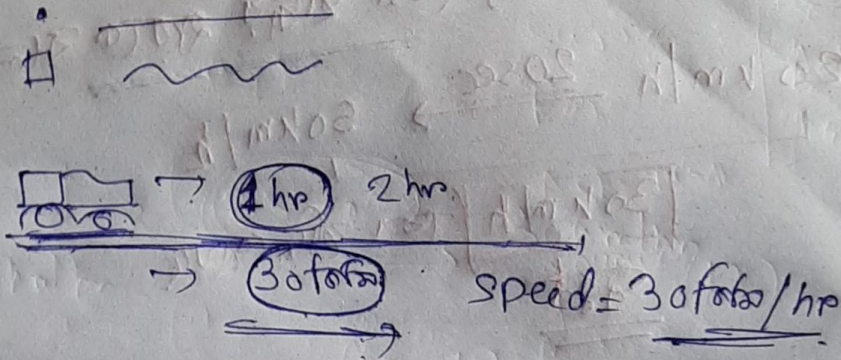 1 hr 2 hr
30 কিমি speed = 30 কিমি/hr